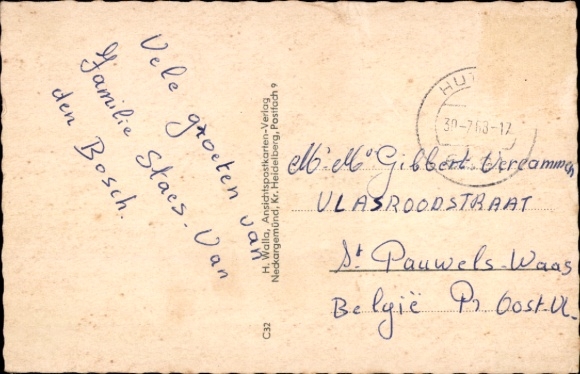 Vele groeten van
Familie Staes-Van
den Bosch.
H. Walla, Ansichtspostkarten-Verlag
Neckargemünd, Kr. Heidelberg, Postfach 9
C32
30-7.63-17
Mr Me Gibbert-Vercammen
VLASROODSTRAAT
St Pauwels-Waas
België Pr Oost-Vl.